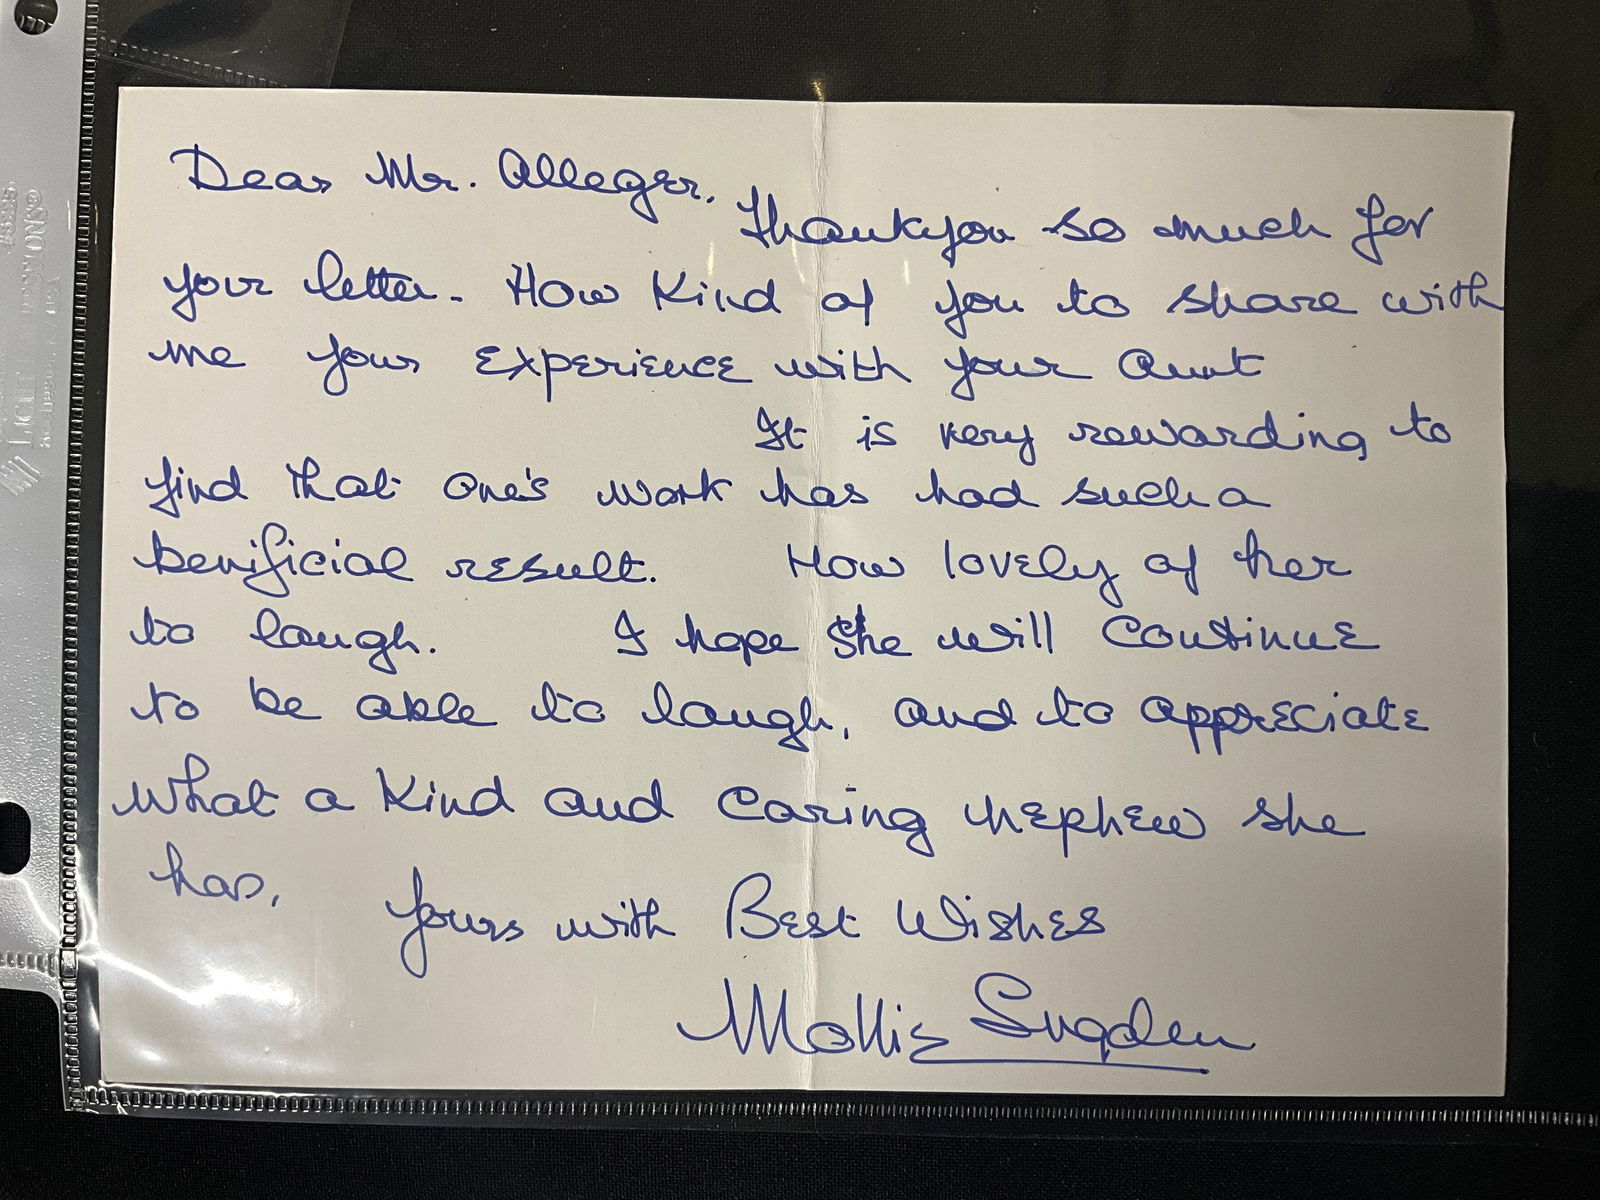 Dear Mr. Alleger,
Thankyou so much for
your letter. How Kind of you to share with
me your experience with your Aunt
It is very rewarding to
find that one's work has had such a
benificial result. How lovely of her
to laugh. I hope she will continue
to be able to laugh, and to appreciate
what a Kind and caring nephew she
has,
Yours with Best Wishes
Mollie Sugden